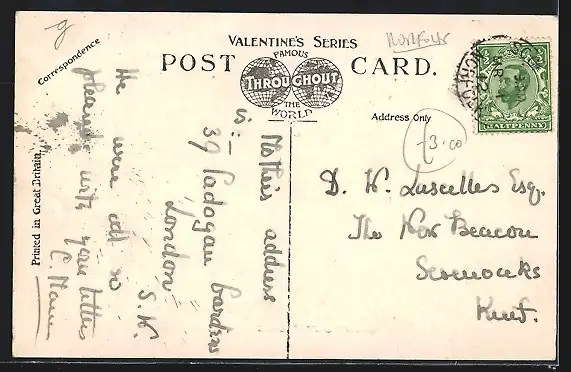 VALENTINE'S SERIES
Norfolk
POST CARD.
FAMOUS
THROUGHOUT
THE
WORLD
Correspondence
Address Only
£3.00
HALFPENNY
Printed in Great Britain
Mother's address
is:-
39 Cadogan Gardens
London
S.W.
We were all so
pleased with your letters
D. W. Lascelles Esq.
The New Beacon
Sevenoaks
Kent.